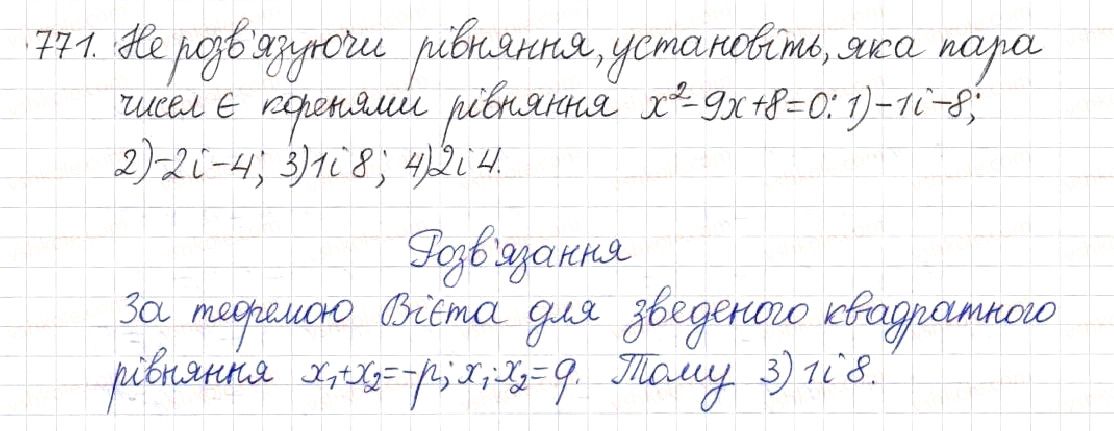 771. Не розв'язуючи рівняння, установіть, яка пара
чисел є коренями рівняння x²-9x+8=0: 1) -1 і -8;
2) -2 і -4; 3) 1 і 8; 4) 2 і 4.
Розв'язання
За теоремою Вієта для зведеного квадратного
рівняння x₁+x₂=-p; x₁·x₂=q. Тому 3) 1 і 8.